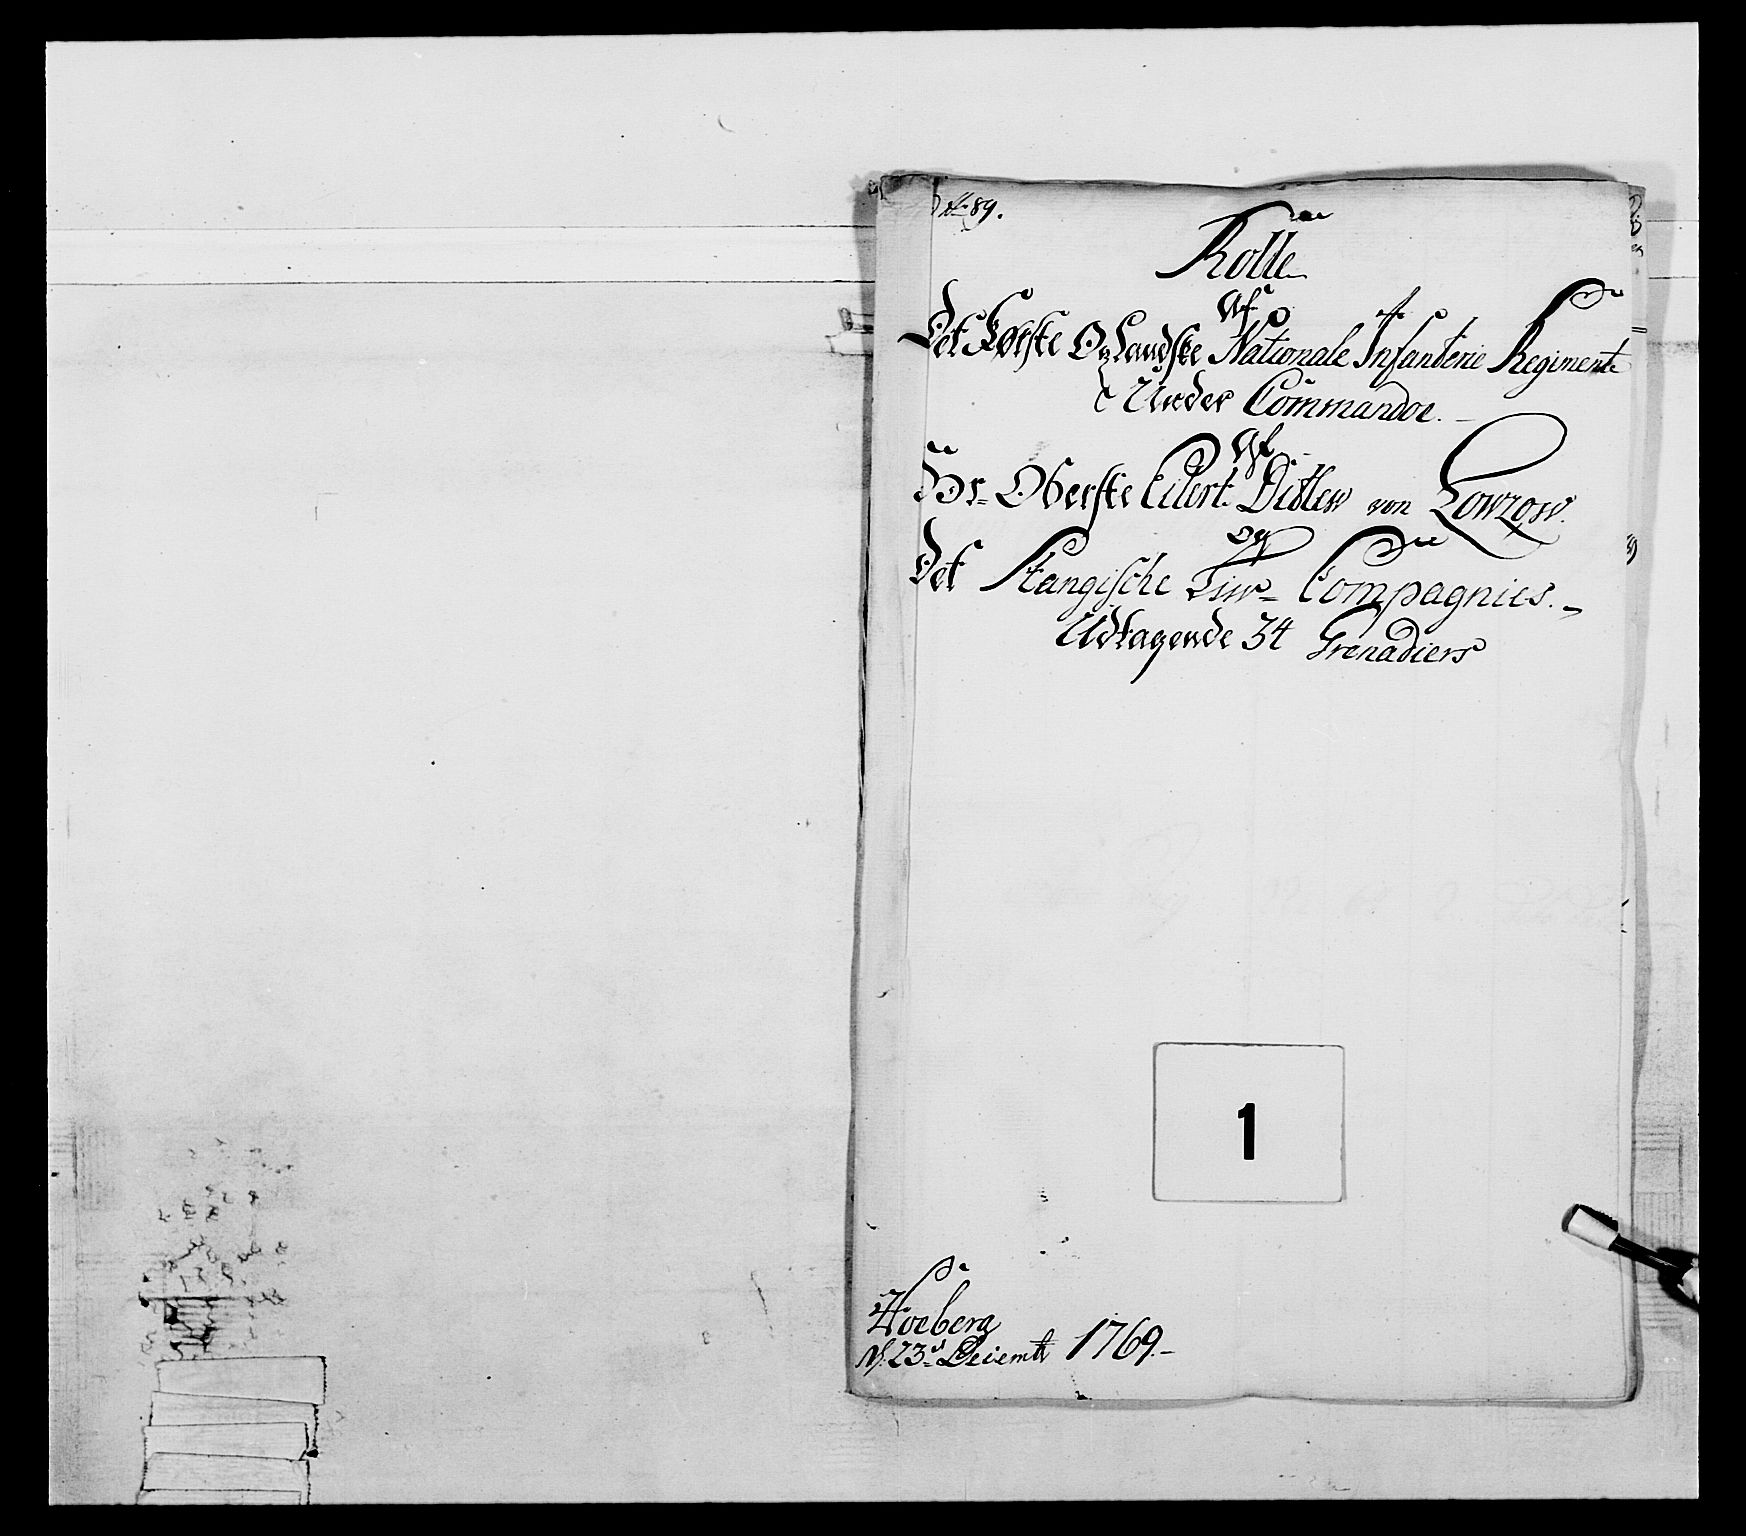 No 89.
Rolle
Af
Det Første Oplandske Nationale Infanterie Regiment
Under Commandoe.
Af
Hr. Oberste Eilert Ditlew von Lowzow.
og
Det Stangische Liw-Compagnies.
Udtagende 34 Grenadiers
1
Hoeberg
d. 23d Decembr 1769.